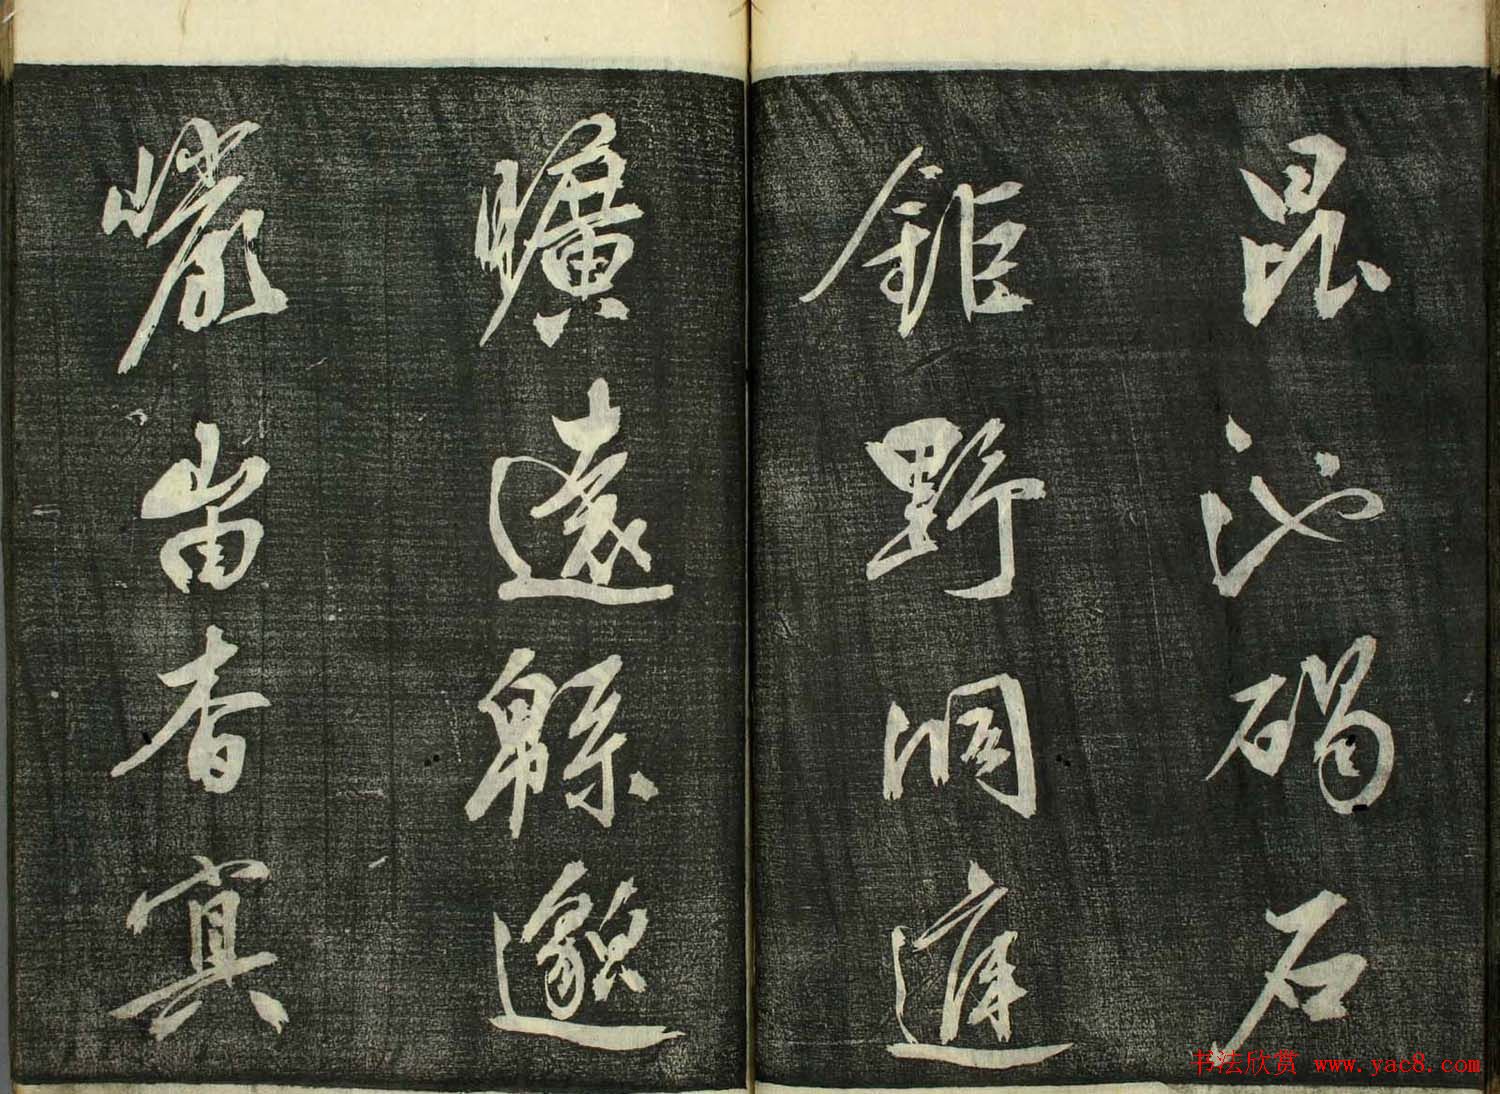 昆池碣石
鉅野洞庭
曠遠緜邈
巖岫杳冥
书法欣赏 www.yac8.com